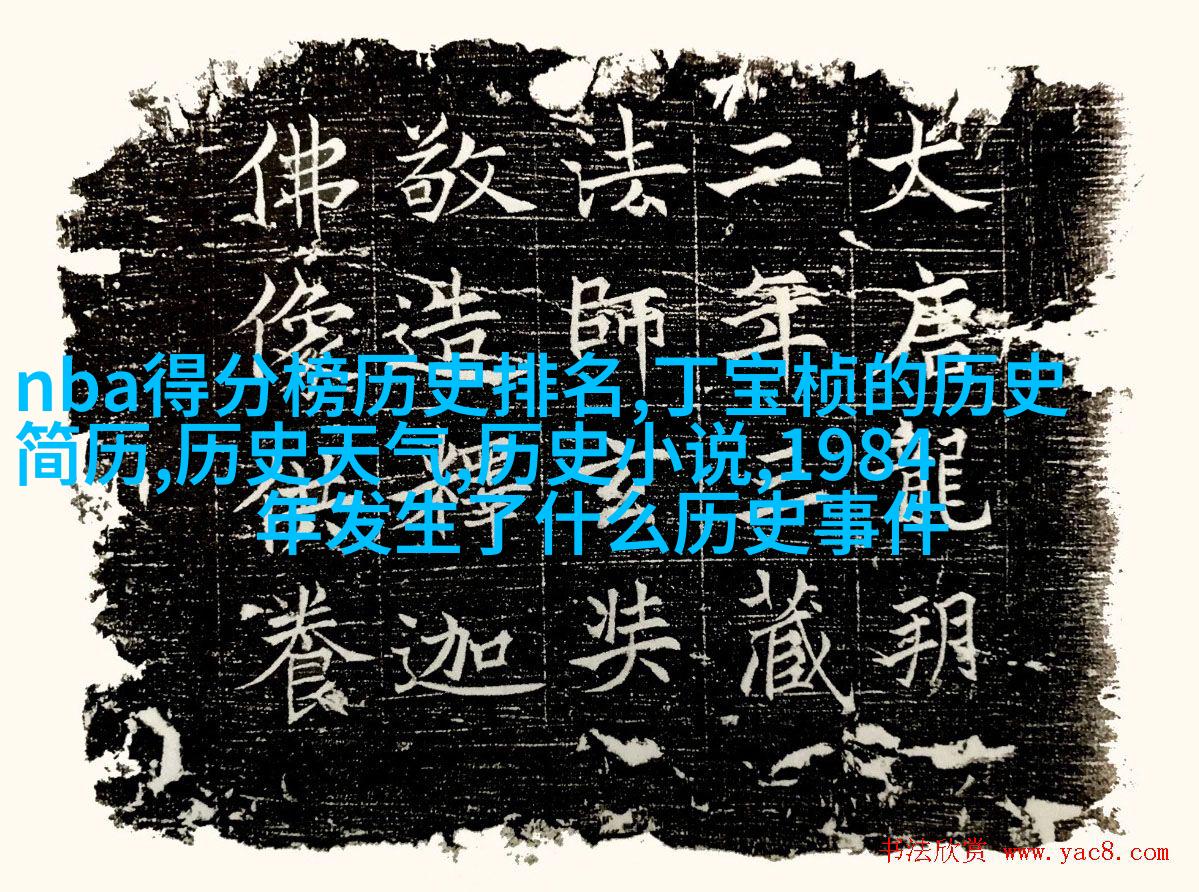 大唐龍朔
二年三藏
法師玄奘
敬造釋迦
佛像供養
nba得分榜历史排名,丁宝桢的历史
简历,历史天气,历史小说,1984
年发生了什么历史事件
书法欣赏 www.yac8.com